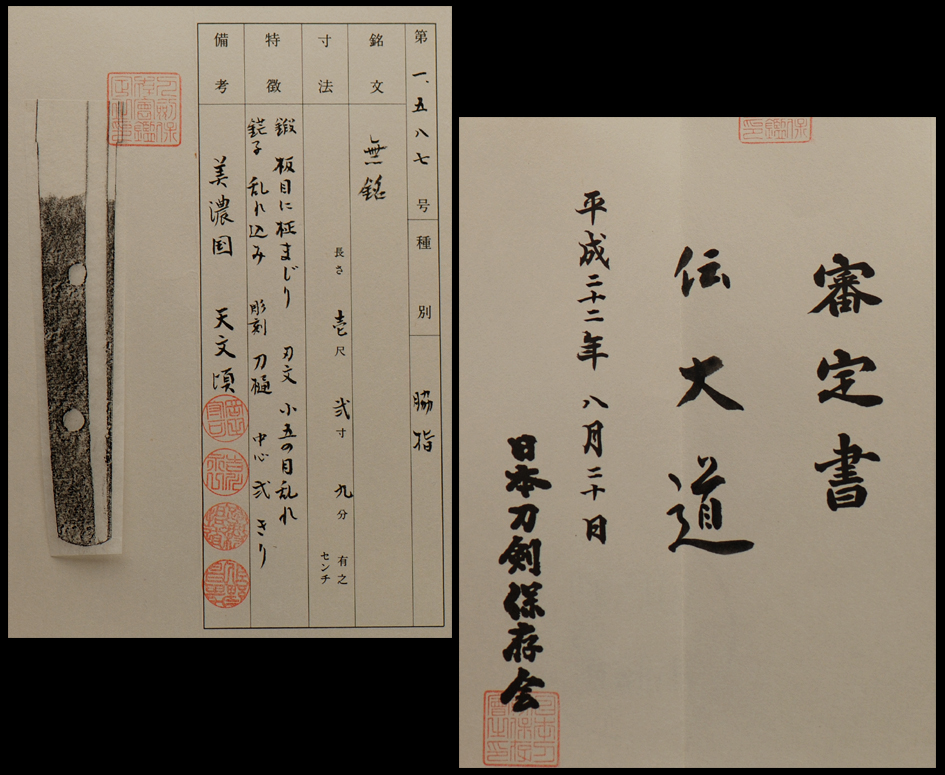 第一、五八七号
種別 脇指
銘文 無銘
寸法 長さ 壱尺 弐寸 九分 有之
センチ
特徴 鍛 板目に柾まじり 刃文 小五の目乱れ
鋩子 乱れ込み 彫刻 刀樋 中心 弐 きり
備考 美濃国 天文頃
審定書
伝大道
平成二十二年八月二十日
日本刀剣保存会